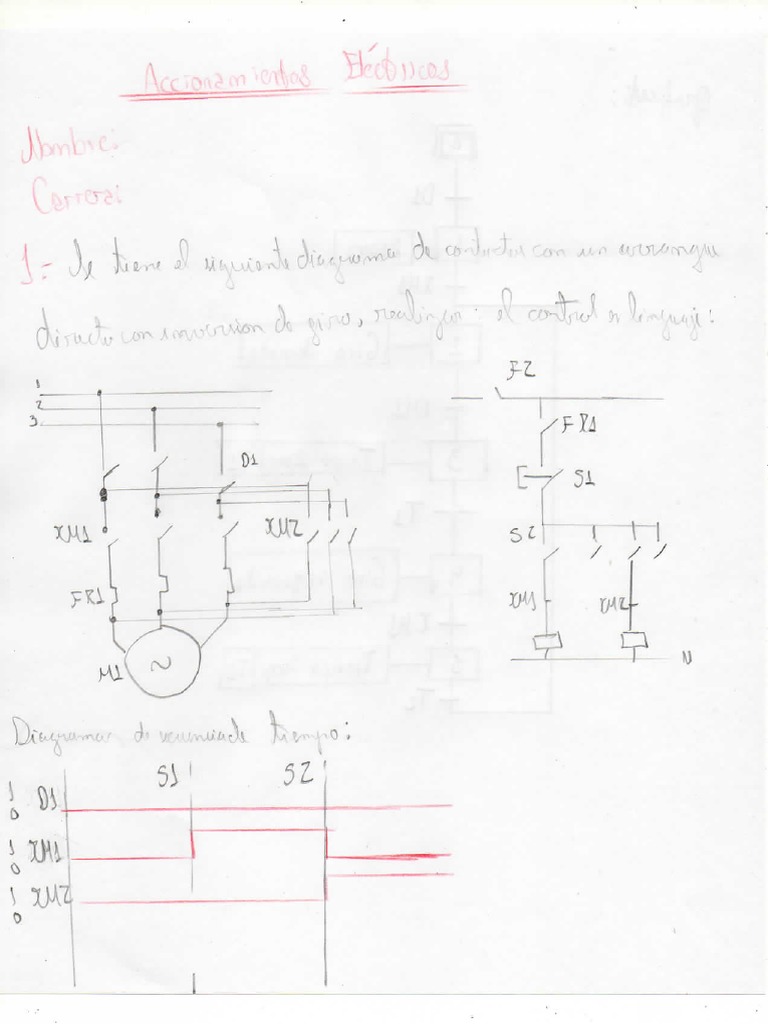 Accionamientos Eléctricos
Nombre:
Carrera:
1.- Se tiene el siguiente diagrama de contactos con un arranque
directo con inversion de giro, realizar: el control en lenguaje:
1
2
3
D1
KM1
KM2
FR1
M1
F2
FR1
S1
S2
KM1
KM2
N
Diagrama de secuencia de tiempo:
S1 S2
1
0 D1
1
0 KM1
1
0 KM2